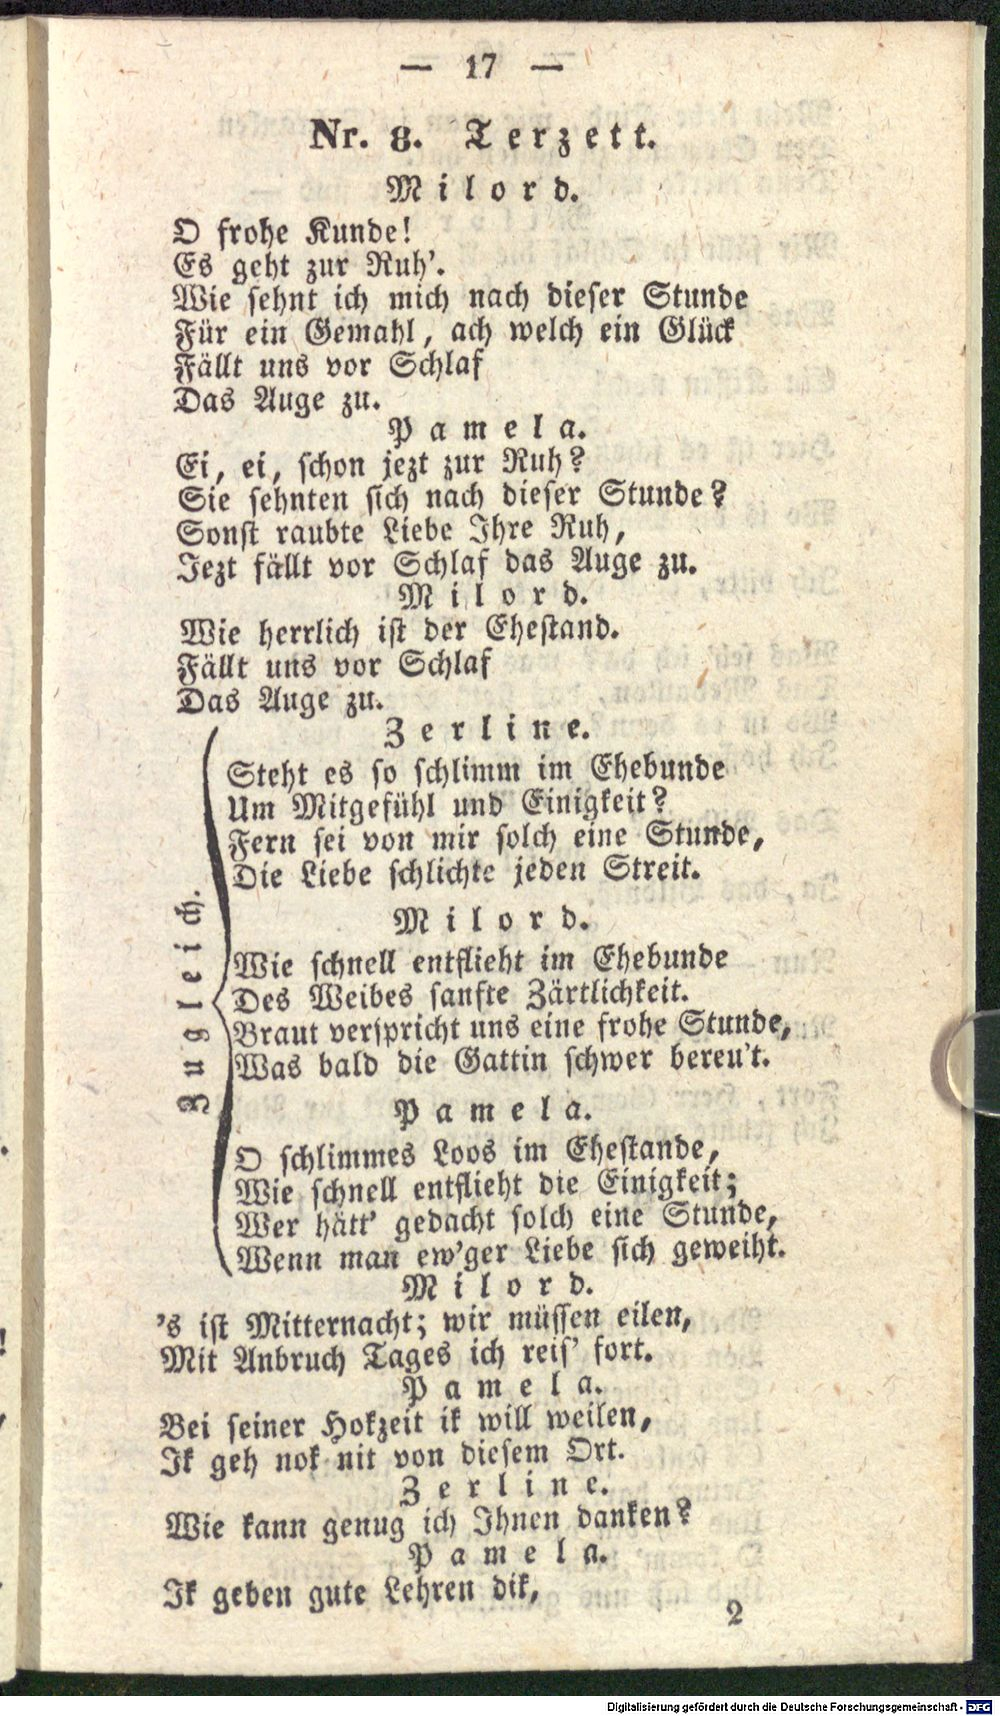 — 17 —
Nr. 8. Terzett.
Milord.
O frohe Kunde!
Es geht zur Ruh'.
Wie sehnt ich mich nach dieser Stunde
Für ein Gemahl, ach welch ein Glück
Fällt uns vor Schlaf
Das Auge zu.
Pamela.
Ei, ei, schon jezt zur Ruh?
Sie sehnten sich nach dieser Stunde?
Sonst raubte Liebe Ihre Ruh,
Jezt fällt vor Schlaf das Auge zu.
Milord.
Wie herrlich ist der Ehestand.
Fällt uns vor Schlaf
Das Auge zu.
Zugleich.
Zerline.
Steht es so schlimm im Ehebunde
Um Mitgefühl und Einigkeit?
Fern sei von mir solch eine Stunde,
Die Liebe schlichte jeden Streit.
Milord.
Wie schnell entflieht im Ehebunde
Des Weibes sanfte Zärtlichkeit.
Braut verspricht uns eine frohe Stunde,
Was bald die Gattin schwer bereu't.
Pamela.
O schlimmes Loos im Ehestande,
Wie schnell entflieht die Einigkeit;
Wer hätt' gedacht solch eine Stunde,
Wenn man ew'ger Liebe sich geweiht.
Milord.
's ist Mitternacht; wir müssen eilen,
Mit Anbruch Tages ich reis' fort.
Pamela.
Bei seiner Hokzeit ik will weilen,
Ik geh nok nit von diesem Ort.
Zerline.
Wie kann genug ich Ihnen danken?
Pamela.
Ik geben gute Lehren dik,
2
Digitalisierung gefördert durch die Deutsche Forschungsgemeinschaft - DFG